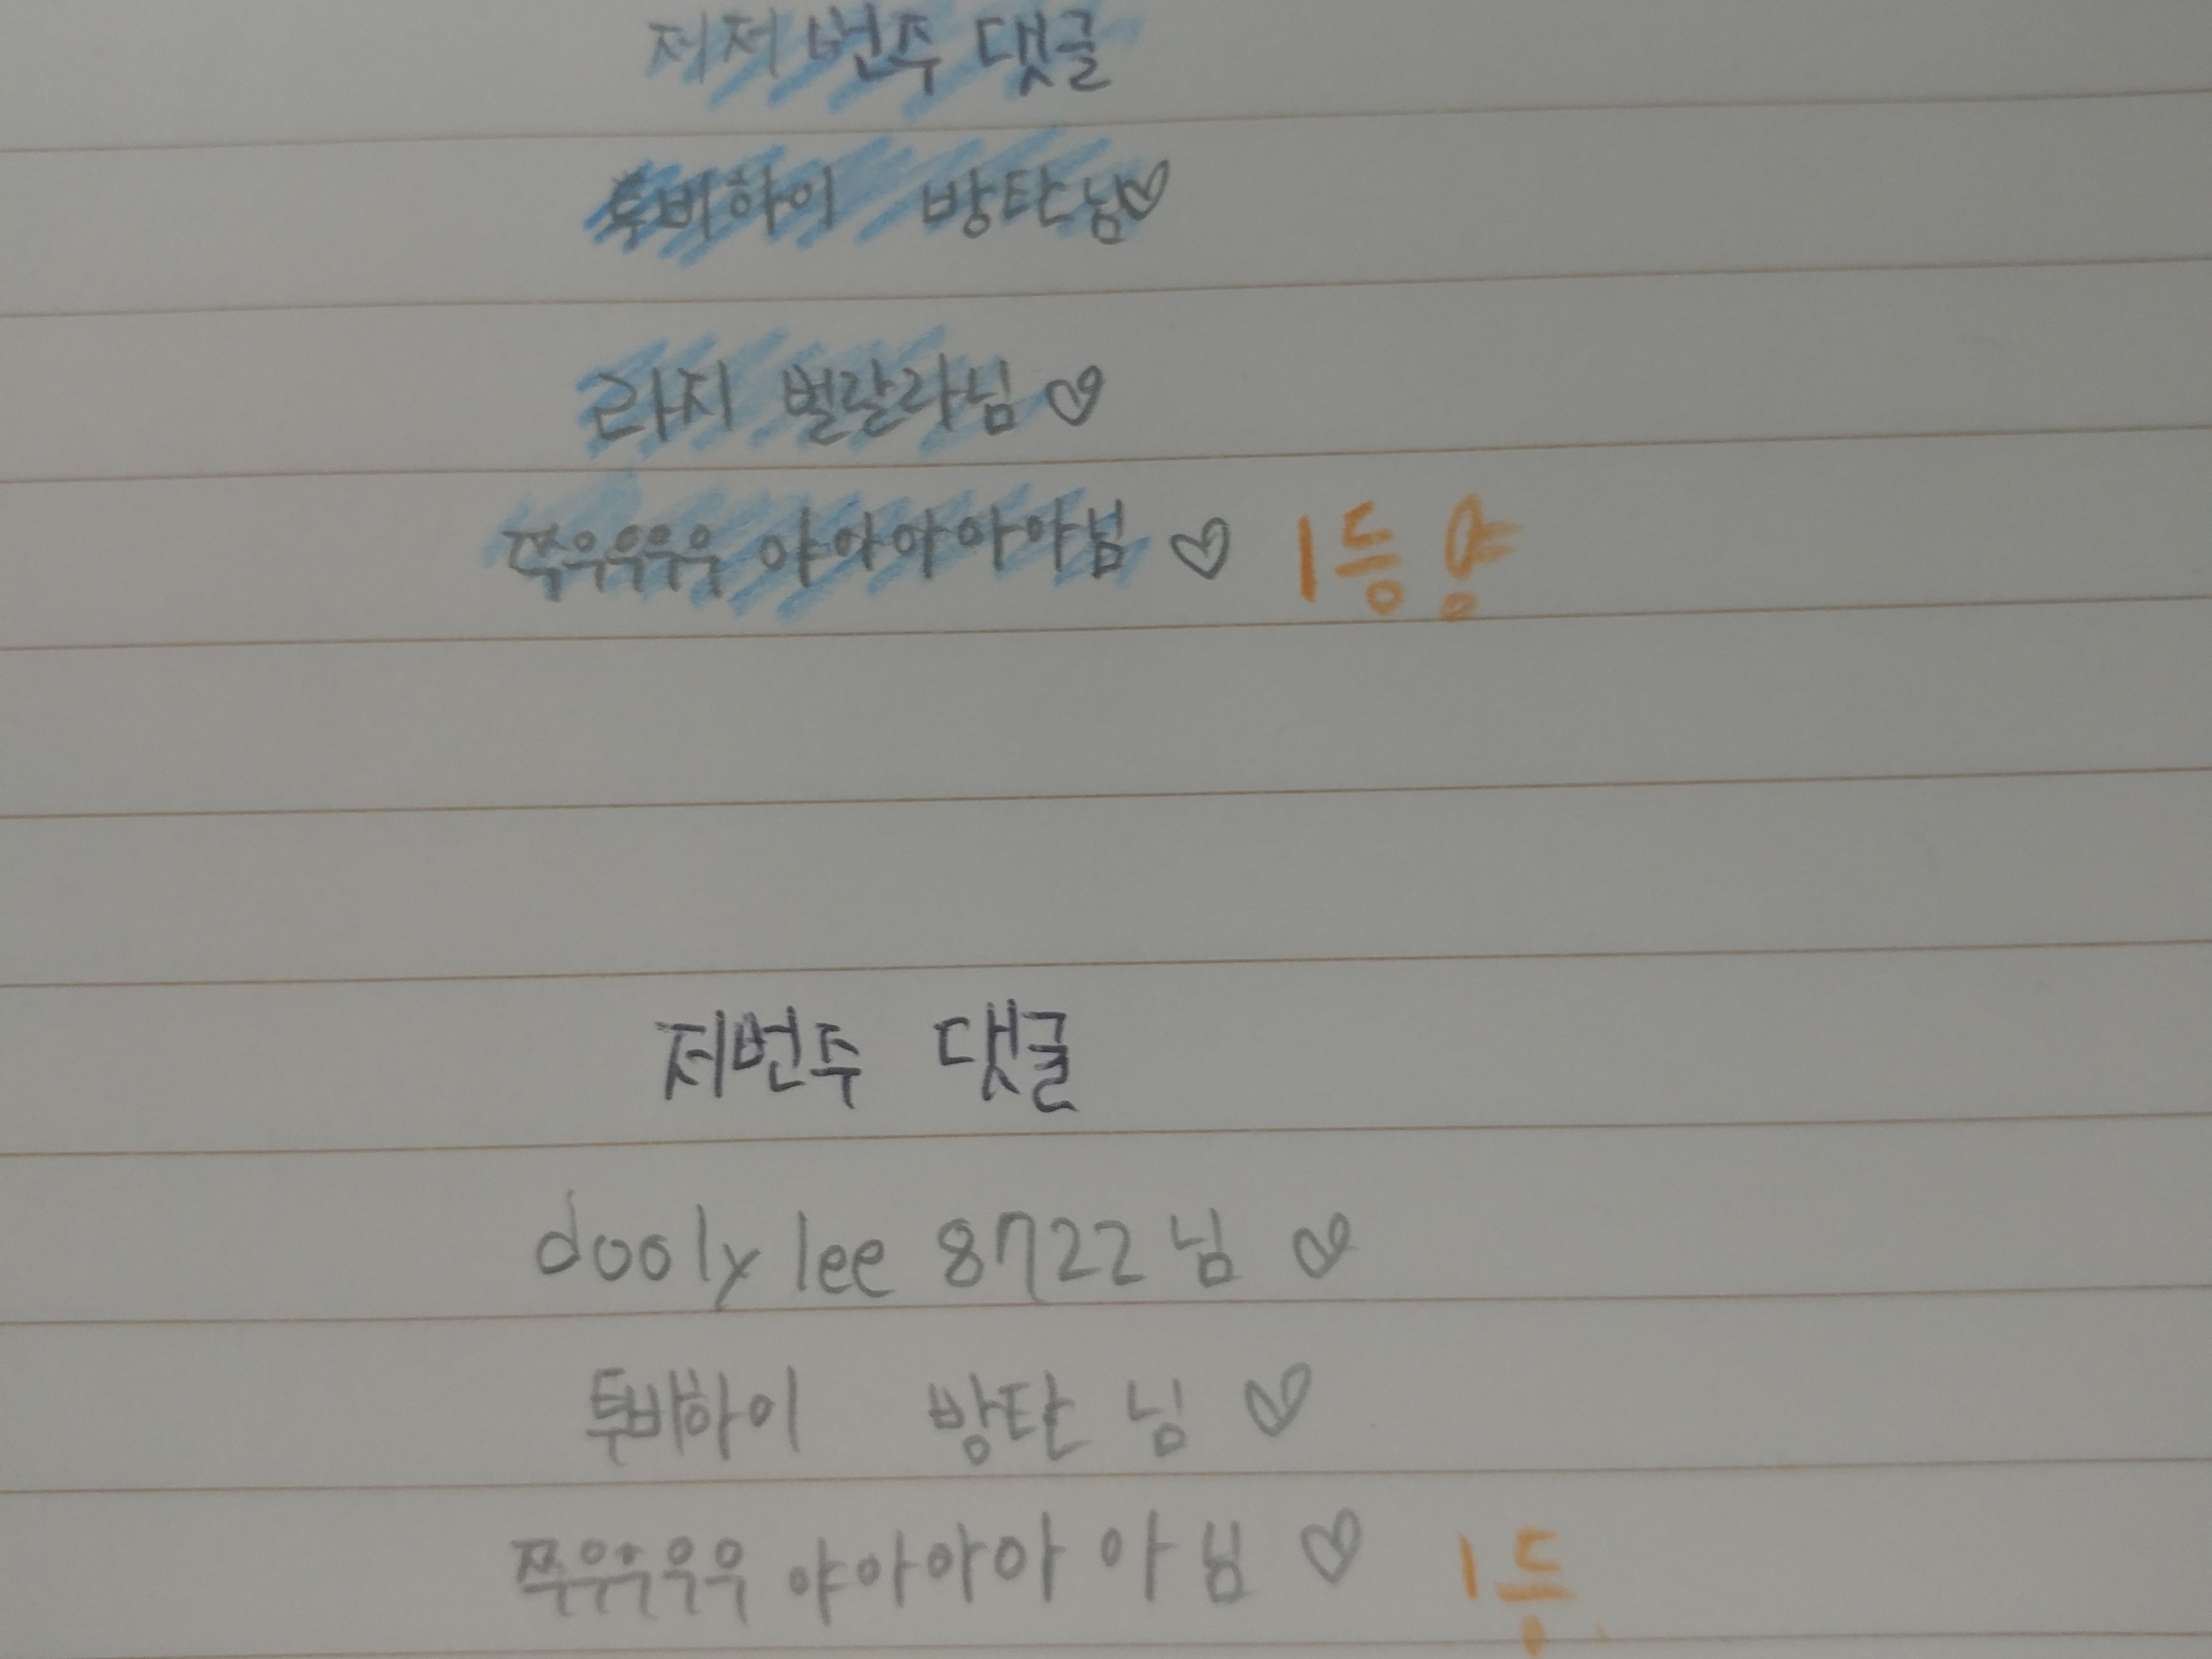 저저번주 댓글
투바하이 방탄님♡
라지 벌랄라님♡
쭈우우우우 야아아아아야님♡ 1등
저번주 댓글
dooly lee 8722님♡
투바하이 방탄님♡
쭈우우우우 야아아아아님♡ 1등